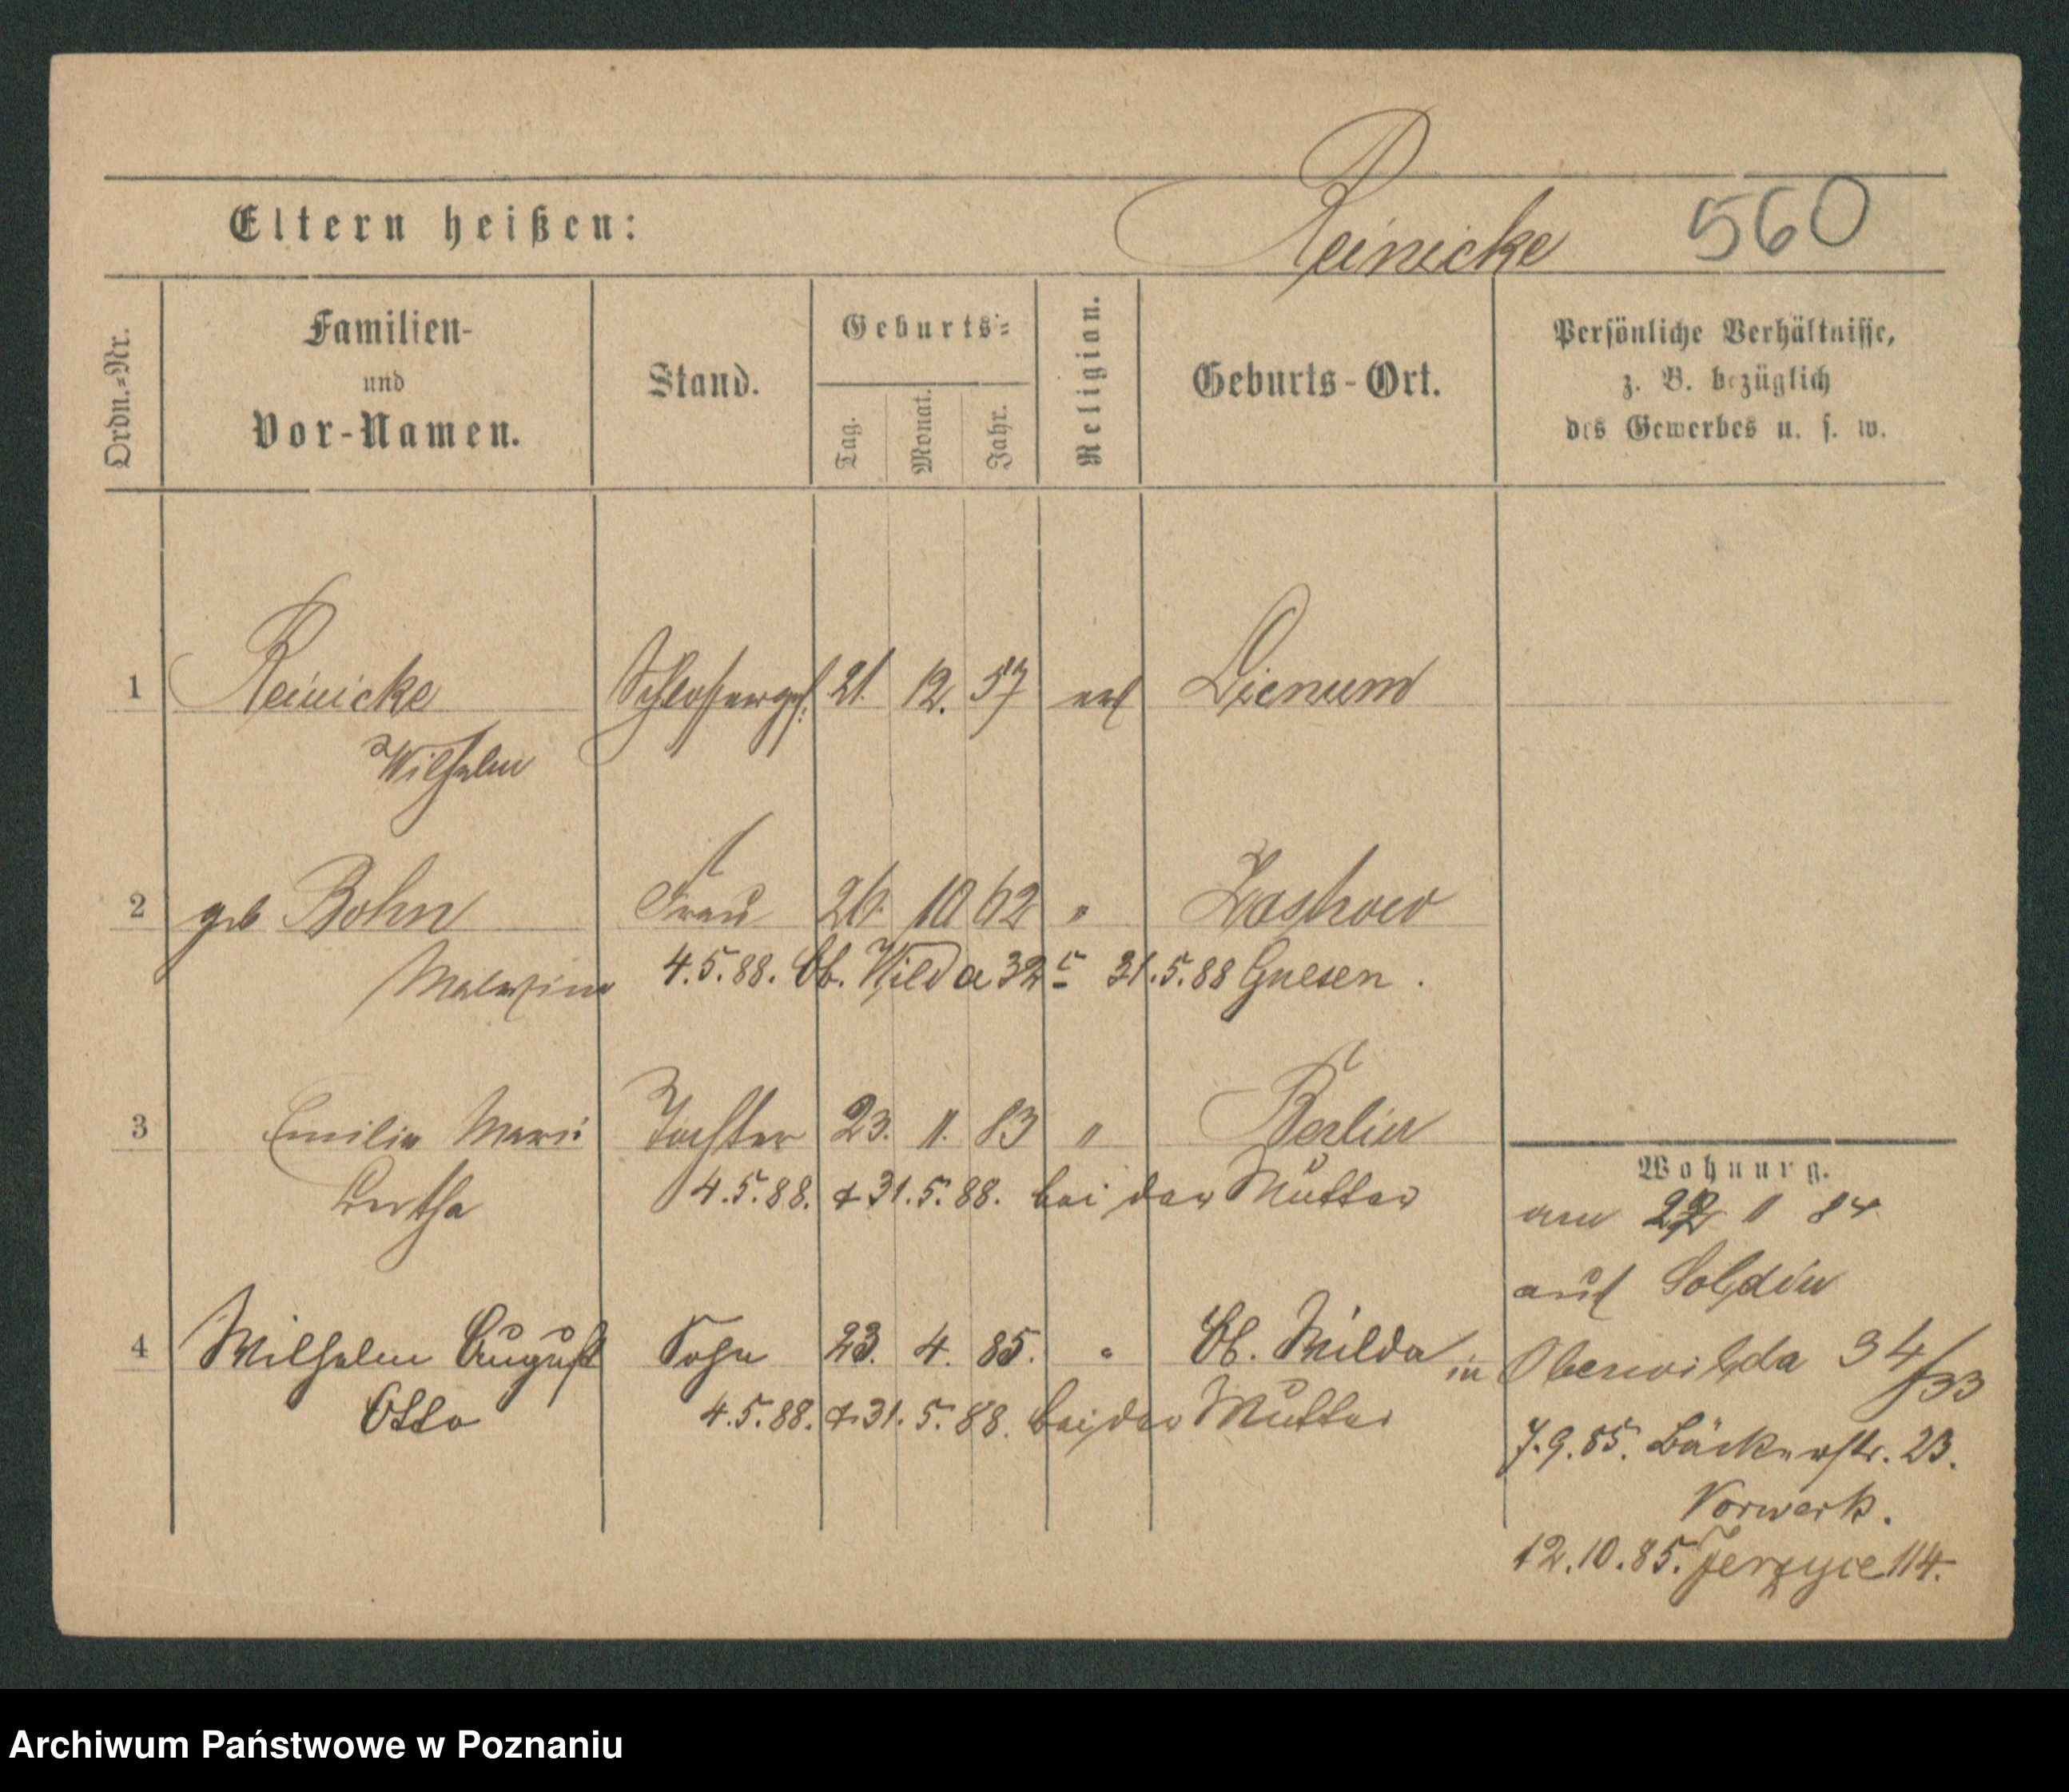 Eltern heißen: Reinicke 560
Ordn.-Nr. Familien- und Vor-Namen. Stand. Geburts- Tag. Monat. Jahr. Religion. Geburts-Ort. Persönliche Verhältnisse, z. B. bezüglich des Gewerbes u. s. w.
1 Reinicke 21. 12. 57
Wilhelm
2 geb Bohn Frau 26. 10 62 "
4.5.88. Ob. Wilda 32 31.5.88 Gnesen.
3 Emilie Marie Tochter 23. 11. 83 " Berlin
Bertha 4.5.88. 31.5.88. bei der Mutter
Wohnung.
am 11 84
aus Soldin
4 Wilhelm August Sohn 23. 4. 85. " Ob. Wilda
in Oberwilda 34/33
Otto 4.5.88. 31.5.88. bei der Mutter
7.9.85. Bäckerstr. 23.
Vorwerk.
12.10.85. Jerzyce 114.
Archiwum Państwowe w Poznaniu